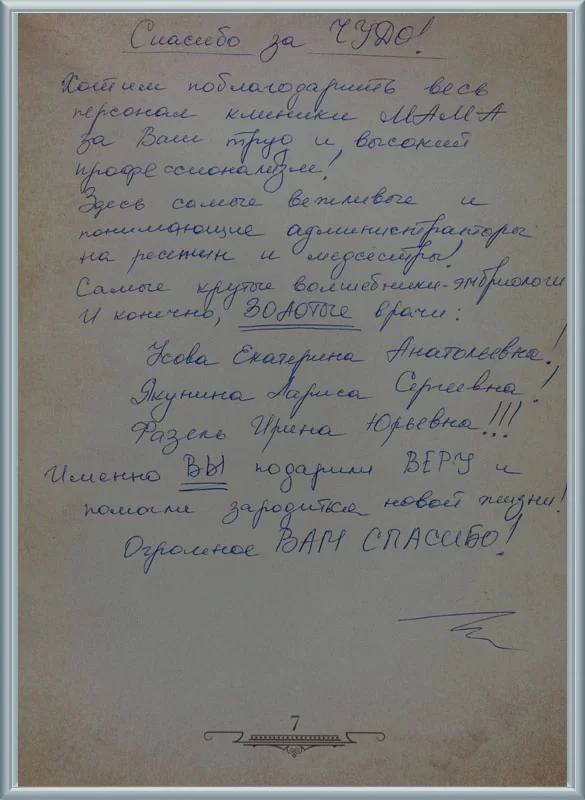 Спасибо за ЧУДО!
Хотим поблагодарить весь
персонал клиники МАМА
за Ваш труд и высокий
профессионализм!
Здесь самые вежливые и
понимающие администраторы
на ресепшн и медсёстры!
Самые крутые волшебники-эмбриологи
И конечно, ЗОЛОТЫЕ врачи:
Усова Екатерина Анатольевна!
Якунина Лариса Сергеевна!
Фазель Ирина Юрьевна!!!
Именно ВЫ подарили ВЕРУ и
помогли зародиться новой жизни!
Огромное ВАМ СПАСИБО!
7